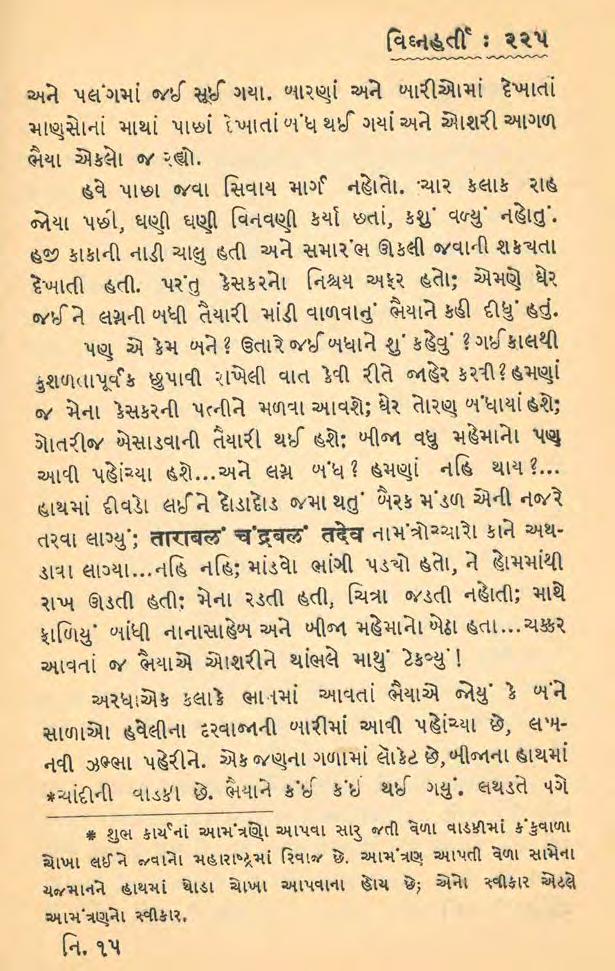 વિઘ્નહર્તા : ૨૨૫
અને પલંગમાં જઈ સૂઈ ગયા. બારણાં અને બારીઓમાં દેખાતાં
માણસોનાં માથાં પાછાં દેખાતાં બંધ થઈ ગયાં અને ઓશરી આગળ
ભૈયા એકલો જ રહ્યો.
હવે પાછા જવા સિવાય માર્ગ નહોતો. ચાર કલાક રાહ
જોયા પછી, ઘણી ઘણી વિનવણી કર્યા છતાં, કશું વળ્યું નહોતું.
હજી કાકાની નાડી ચાલુ હતી અને સમારંભ ઊકલી જવાની શક્યતા
દેખાતી હતી. પરંતુ કેસકરનો નિશ્ચય અફર હતો; એમણે ઘેર
જઈને લગ્નની બધી તૈયારી માંડી વાળવાનું ભૈયાને કહી દીધું હતું.
પણ એ કેમ બને? ઉતારે જઈ બધાને શું કહેવું ? ગઈ કાલથી
કુશળતાપૂર્વક છુપાવી રાખેલી વાત કેવી રીતે જાહેર કરવી? હમણાં
જ મેના કેસકરની પત્નીને મળવા આવશે; ઘેર તોરણ બંધાયાં હશે;
ગોતરીજ બેસાડવાની તૈયારી થઈ હશે; બીજા વધુ મહેમાનો પણ
આવી પહોંચ્યા હશે...અને લગ્ન બંધ? હમણાં નહિ થાય?...
હાથમાં દીવડો લઈને દોડાદોડ જમા થતું બૈરક મંડળ એની નજરે
તરવા લાગ્યું; तारावलं चंद्रबलं तदेव નામંત્રોચ્ચારો કાને અથ-
ડાવા લાગ્યા...નહિ નહિ; માંડવો ભાંગી પડ્યો હતો, ને હોમમાંથી
રાખ ઊડતી હતી; મેના રડતી હતી, ચિત્રા જડતી નહોતી; માથે
ફાળિયું બાંધી નાનાસાહેબ અને બીજા મહેમાનો બેઠા હતા...ચક્કર
આવતાં જ ભૈયાએ ઓશરીને થાંભલે માથું ટેકવ્યું!
અરધાએક કલાકે ભાનમાં આવતાં ભૈયાએ જોયું કે બંને
સાળાઓ હવેલીના દરવાજાની બારીમાં આવી પહોંચ્યા છે, લખ-
નવી ઝભ્ભા પહેરીને. એક જણના ગળામાં લૉકેટ છે, બીજાના હાથમાં
*ચાંદીની વાડકી છે. ભૈયાને કંઈ કંઈ થઈ ગયું. લથડતે પગે
* શુભ કાર્યનાં આમંત્રણો આપવા સારુ જતી વેળા વાડકીમાં કંકુવાળા
ચોખા લઈને જવાનો મહારાષ્ટ્રમાં રિવાજ છે. આમંત્રણ આપતી વેળા સામેના
યજમાનને હાથમાં થોડા ચોખા આપવાના હોય છે; એનો સ્વીકાર એટલે
આમંત્રણનો સ્વીકાર.
નિ. ૧૫